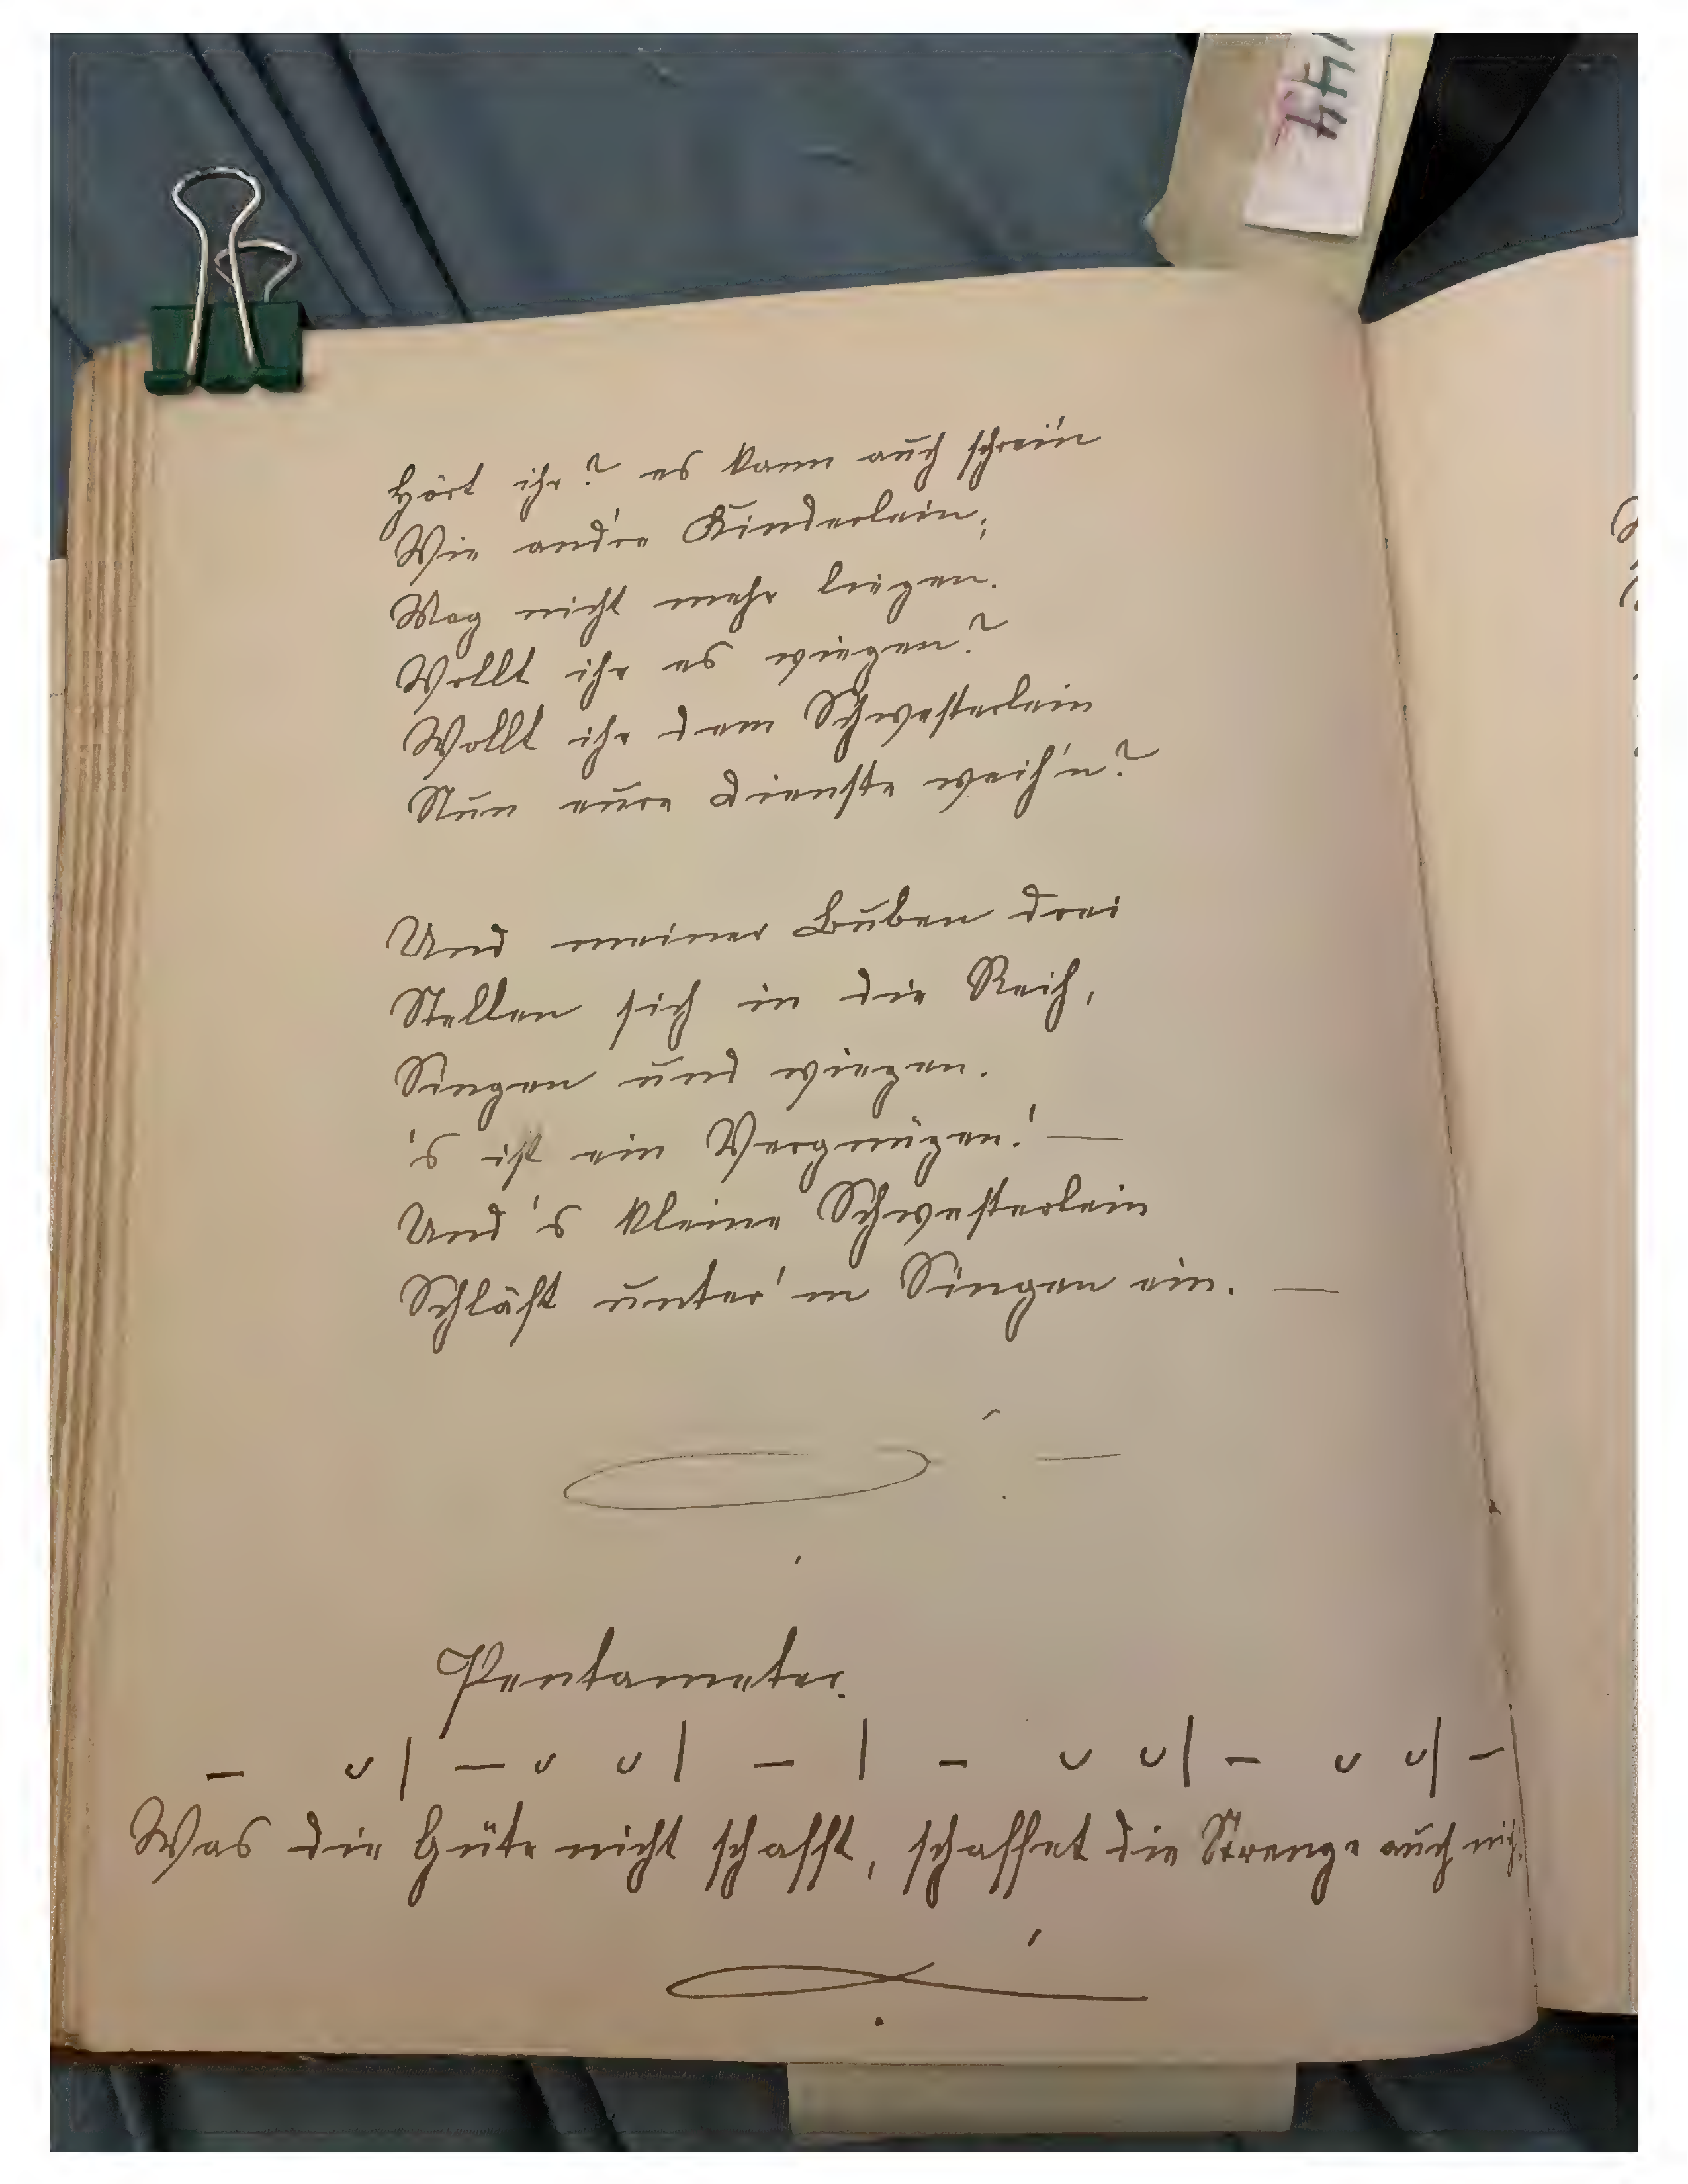 Hört ihr? es kann auch schrei'n
Wie and're Kinderlein;
Mag nicht mehr liegen.
Wollt ihr es wiegen?
Wollt ihr dem Schwesterlein
Nun eure Dienste weih'n?
Und meiner Buben drei
Stellen sich in die Reih,
Singen und wiegen.
's ist ein Vergnügen! —
Und 's kleine Schwesterlein
Schläft unter'm Singen ein. —
Pentameter.
– ᴗ | – ᴗ ᴗ | – | – ᴗ ᴗ | – ᴗ ᴗ | –
Was die Güte nicht schafft, schaffet die Strenge auch